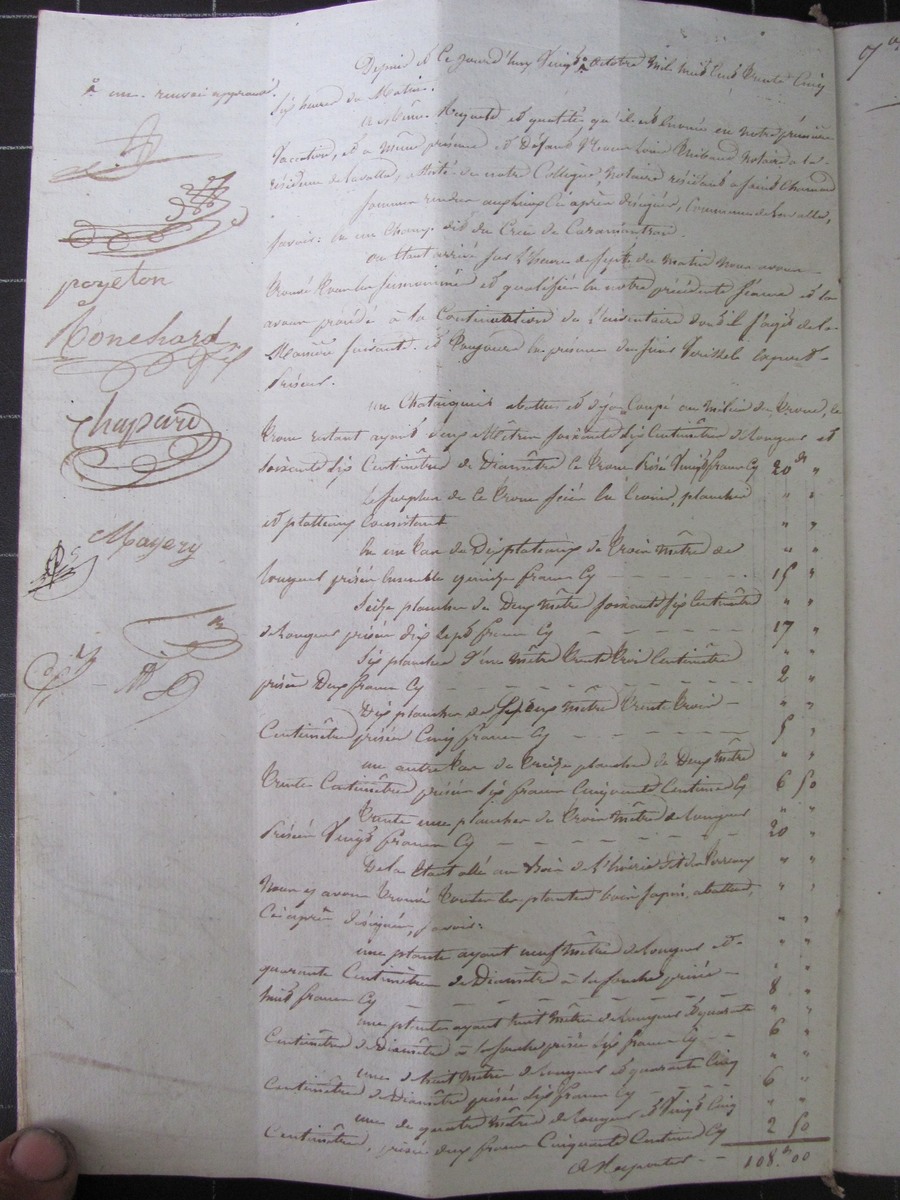 Depuis et Ce jourd'huy Vingt octobre mil huit Cent trente Cinq
Six heures du Matin.
un renvoi approuvé.
A Même Requête et qualités qu'il est énoncé en notre première
Vacation, et a même présence et Défaut Louis Thibaud Notaire a la
résidence de Lavalla, assisté de notre Collègue, Notaire résidant a Saint Chamond
Sommes rendus aux lieux Ci après désignés, Commune de Lavalla,
Savoir: en un champ dit du Creu de
ou étant arrivés sur l'heure de Sept du matin nous avons
trouvé tous les susnommés et qualifiés en notre précédente séance et la
avons procédé à la Continuation de l'inventaire dont il s'agit de la
Manière suivante. et toujours en présence du sieur expert
priseur.
poyeton
Monchard
Chapard
Mayery
un Chataignier abattu et déjà Coupé au milieu du tronc, le
tronc restant ayant deux Mêtres soixante dix Centimêtres de longueur et
soixante dix Centimêtres de Diamêtre le tronc prisé Vingt francs Cy 20 "
le surplus de Ce tronc scié en planches " "
et platteaux Consistant " "
en un tas de Dix plateaux de trois mêtres de " "
longueur prisés Ensemble quinze francs Cy 15 "
Seize planches de Deux mêtres soixante six Centimêtres " "
de longueur prisées dix Sept francs Cy 17 "
Six planches d'un mêtre trente trois Centimêtres " "
prisées Deux francs Cy 2 "
Dix planches de deux mêtres trente trois " "
Centimêtres prisées Cinq francs Cy 5 "
un autre tas de treize planches de Deux mêtres " "
trente Centimêtres prisées Six francs Cinquante Centimes Cy 6 50
trente une planches de trois mêtres de longueur " "
Prisées Vingt francs Cy 20 "
De la étant allé au bois de l'hoirie dit du " "
Nous y avons trouvé toutes les plantes bois sapin abattues, " "
Ci après désignées, savoir: " "
une plante ayant neuf mêtres de longueur et " "
quarante Centimêtres de Diamêtre à la souche prisée " "
huit francs Cy 8 "
une plante ayant huit mêtres de longueur et quarante " "
Centimêtres de diamêtre à la souche prisée six francs Cy 6 "
une de huit mêtres de longueur et quarante Cinq " "
Centimêtres de Diamêtre prisée Six francs Cy 6 "
une de quatre mêtres de longueur et Vingt Cinq " "
Centimêtres, prisée deux francs Cinquante Centimes Cy 2 50
A Reporter 108. 00